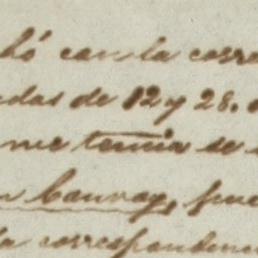 hó con la corre
das de 12 y 28. 
me temia se
n Cauvay, pue
la correspondenc